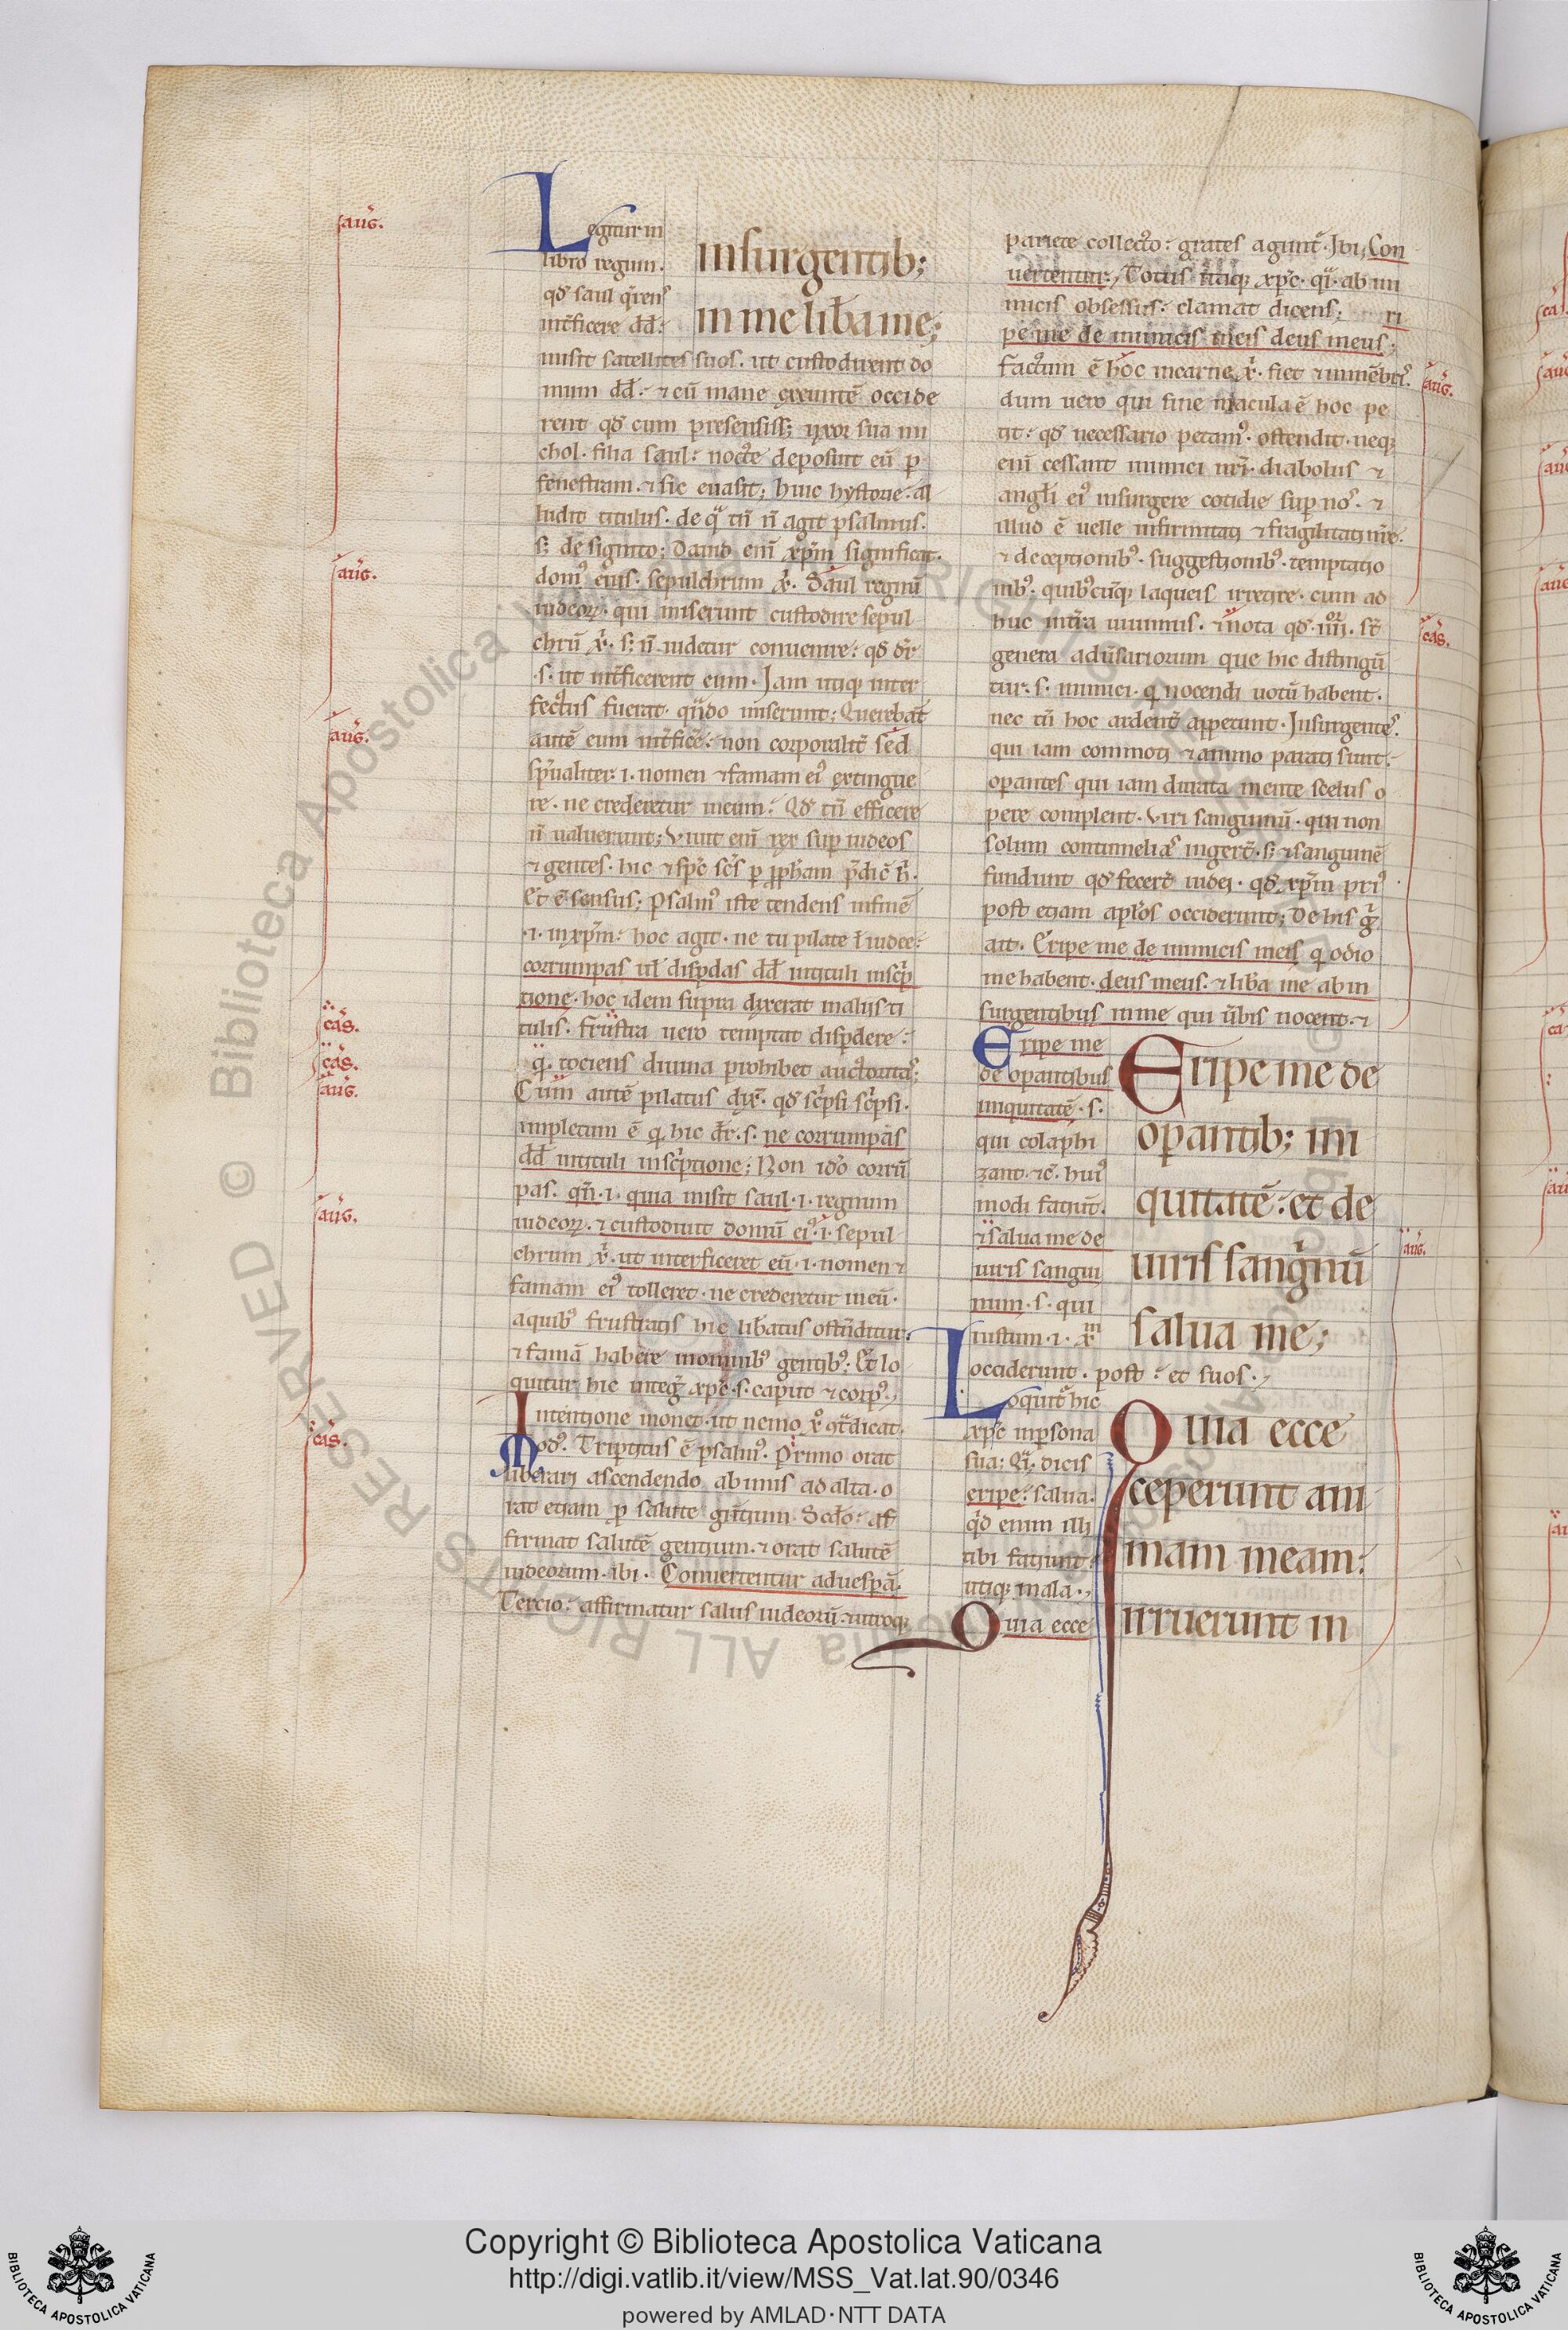 auḡ.
Legitur in
libro regum.
qd̄ saul q̄rens
int̄ficere dd̄.
insurgentib;
in me lib̄a me;
misit satellites suos. ut custodirent do
mum dd̄. ⁊ eū mane exeuntē occide
rent qd̄ cum presensiss; uxor sua mi
chol. filia saul: nocte deposuit eū p
fenestram. ⁊ sic euasit; huic hystorie. al
ludit titulus. de q̄ tn̄ n̄ agit psalmus.
s; de signato; dauid eni xp̄m significat.
auḡ.
domꝰ eius. sepulchrum x̄. Saul regnū
iudeoꝝ. qui miserunt custodire sepul
chrū x̄. s; n̄ uidetur conuenire: qd̄ dr̄
.s. ut int̄ficerent eum. Jam utiq; inter
fectus fuerat. qn̄do miserunt; Querebāt
auḡ.
autē eum int̄ficē: non corporalit̄ sed
sp̄ualiter. i. nomen ⁊ famam eiꝰ extingue
re. ne crederetur in eum: Qd̄ tn̄ efficere
n̄ ualuerunt; Viuit eni rex sup iudeos
⁊ gentes. hic ⁊ sp̄c sc̄s p pph̄am p̄dic̄ h̄.
Et ē sensus; Psalmꝰ iste tendens in finē
.i. in xp̄m: hoc agit. ne tu pilate ł iudee:
corrumpas uł dispdas dd̄ in tituli inscp̄
tione. hoc idem supra dixerat in aliis ti
cas̄.
tulis. frustra uero temptat dispdere:
cas̄.
q̄. tociens diuina prohibet auctoritas;
auḡ.
Cum autē pilatus dix̄. qd̄ scp̄si scp̄si.
impletum ē q hic dr̄. s. ne corrumpas
dd̄ in tituli inscp̄tione; Non ido corrū
pas. qn̄. i. quia misit saul. i. regnum
auḡ.
iudeoꝝ. ⁊ custodiuit domū eiꝰ. i. sepul
chrum x̄. ut interficeret eū. i. nomen ⁊
famam eiꝰ tolleret. ne crederetur in eū.
a quibꝰ frustratis hic lib̄atus ostn̄ditur.
⁊ famā habere in omnibꝰ gentibꝰ; Et lo
quitur hic inteḡ xp̄c. s. caput ⁊ corpꝰ.
Intentione monet. ut nemo x̄o ꝯt̄dicat.
cas̄.
Modꝰ. Tripertitus ē psalmꝰ. Primo orat
liberari ascendendo ab imis ad alta. o
rat etiam p salute gentium. Scdo: af
firmat salutē gentium. ⁊ orat salutē
iudeorum. ibi. Conuertentur ad uespā.
Tercio: affirmatur salus iudeorū. ⁊ utroq;
pariete collecto: grates agunt̄. Jbi; Con
uertentur. Totus itaq; xp̄c. q̄. ab ini
micis obsessus: clamat dicens; ri
pe me de inimicis meis deus meus;
auḡ.
factum ē hoc in carne x̄. fiet ⁊ in mēbrisꝰ.
dum uero qui sine macula ē hoc pe
tit: qd̄ necessario petamꝰ. ostendit. neq;
eni cessant inimici nr̄i. diabolus ⁊
angłi eiꝰ insurgere cotidie sup nos. ⁊
illud ē uelle infirmitati ⁊ fragilitati nr̄e.
⁊ deceptionibꝰ. suggestionibꝰ. temptatio
nibꝰ. quibꝰcūq; laqueis irretire. cum ad
cas̄.
huc in tr̄a uiuimus. ⁊ nota qd̄ iiii. st̄
genera adūsariorum que hic distingū
tur. s. inimici. q nocendi uotū habent.
nec tn̄ hoc ardent̄ appetunt. Insurgentes.
qui iam commoti ⁊ animo parati sunt.
operantes qui iam durata mente scelus o
pere complent. Viri sanguinū. qui non
solum contumelias ingerēt. s; ⁊ sanguinē
fundunt qd̄ fecer̄ iudei. qd̄ xp̄m priꝰ
post etiam apłos occiderunt; De his g̊
ait. Eripe me de inimicis meis q odio
me habent. deus meus. ⁊ lib̄a me ab in
surgentibus in me qui ūbis nocent. ⁊
Eripe me
de operantibus
iniquitatē. s.
qui colaphi
zant. ⁊c̄. huiꝰ
modi faciūt.
⁊ salua me de
uiris sangui
num. s. qui
iustum. i. x̄m
occiderunt. post: et suos.
Eripe me de
operantib; ini
quitatē: et de
uiris sanguinū
salua me;
auḡ.
Loquit̄ hic
xp̄c in persona
sua: Q̄. dicis
eripe: salua.
q̄d enim illi
tibi faciunt:
utiq; mala.
Quia ecce
Quia ecce
ceperunt ani
mam meam:
irruerunt in
Copyright © Biblioteca Apostolica Vaticana
http://digi.vatlib.it/view/MSS_Vat.lat.90/0346
powered by AMLAD·NTT DATA
BIBLIOTECA APOSTOLICA VATICANA
BIBLIOTECA APOSTOLICA VATICANA